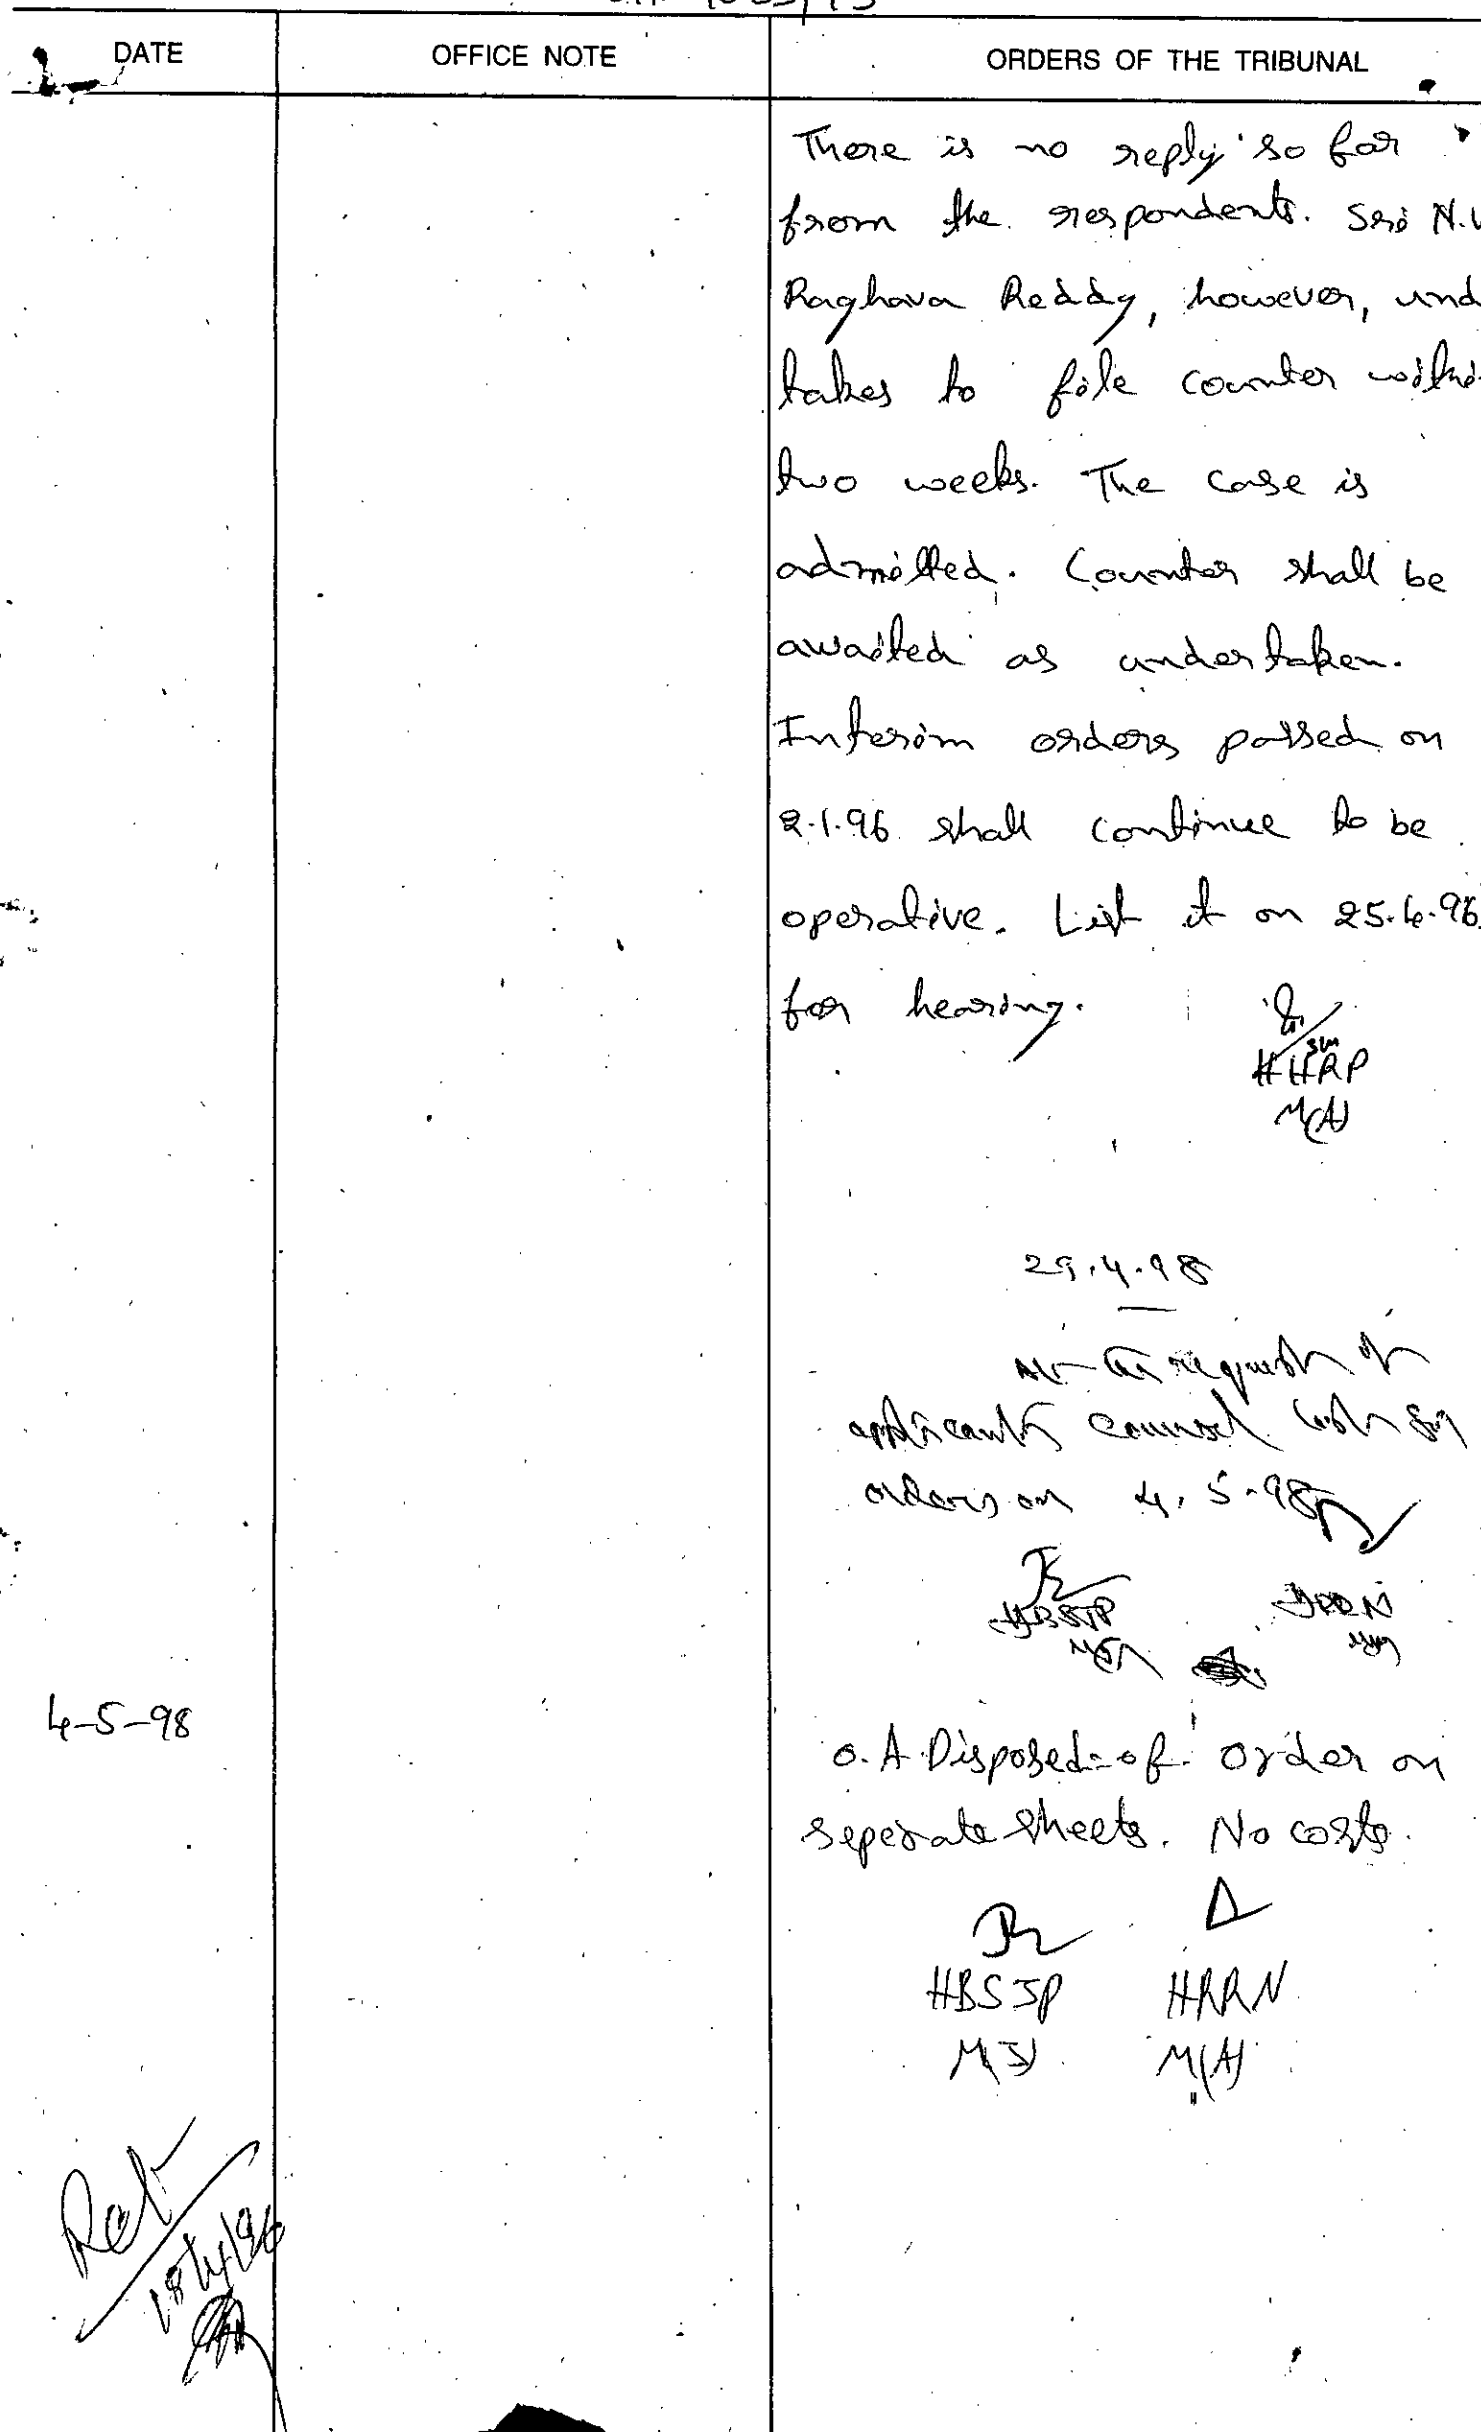 DATE OFFICE NOTE ORDERS OF THE TRIBUNAL
There is no reply so far
from the respondents. Sri N.V
Raghava Reddy, however, und
takes to file counter withi
two weeks. The case is
admitted. Counter shall be
awaited as undertaken.
Interim orders passed on
2.1.96 shall continue to be
operative. List it on 25.4.96
for hearing.
HHRP
M(A)
29.4.98
At the request of
applicant's counsel list for
orders on 4.5.98
HBSJP HRRN
M(J)
4-5-98
O.A Disposed-of. Order on
seperate sheets. No costs.
HBSJP HRRN
M(J) M(A)
18/4/96